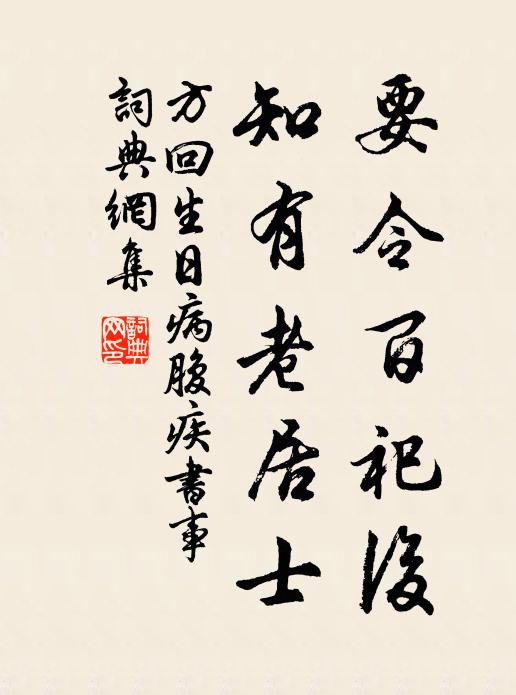 要令百祀後
知有老居士
方回生日病腹疾書事
詞典網集
詞典網印